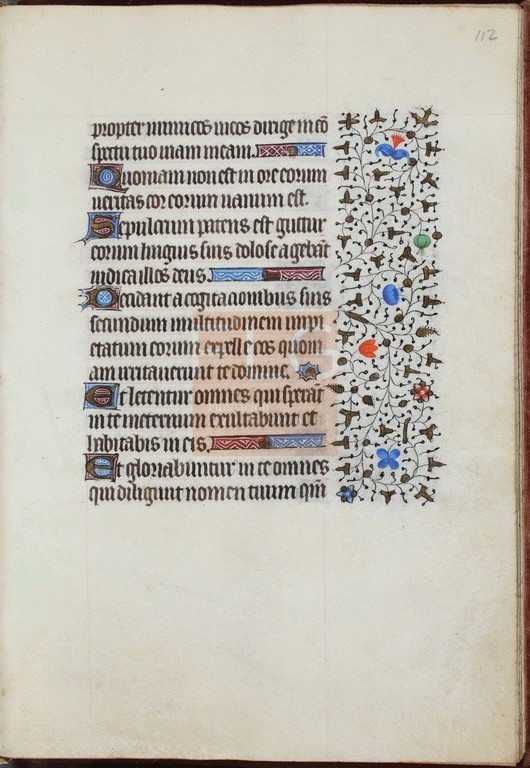 112
propter inimicos meos dirige in cō
spectu tuo viam meam.
Quoniam non est in ore eorum
veritas cor eorum vanum est.
Sepulcrum patens est guttur
eorum linguis suis dolose agebāt
iudica illos deus.
Decidant a cogitacionibus suis
secundum multitudinem impi
etatum eorum expelle eos quoni
am irritaverunt te domine.
Et letentur omnes qui sperāt
in te in eternum exultabunt et
habitabis in eis.
Et gloriabuntur in te omnes
qui diligunt nomen tuum qm̄